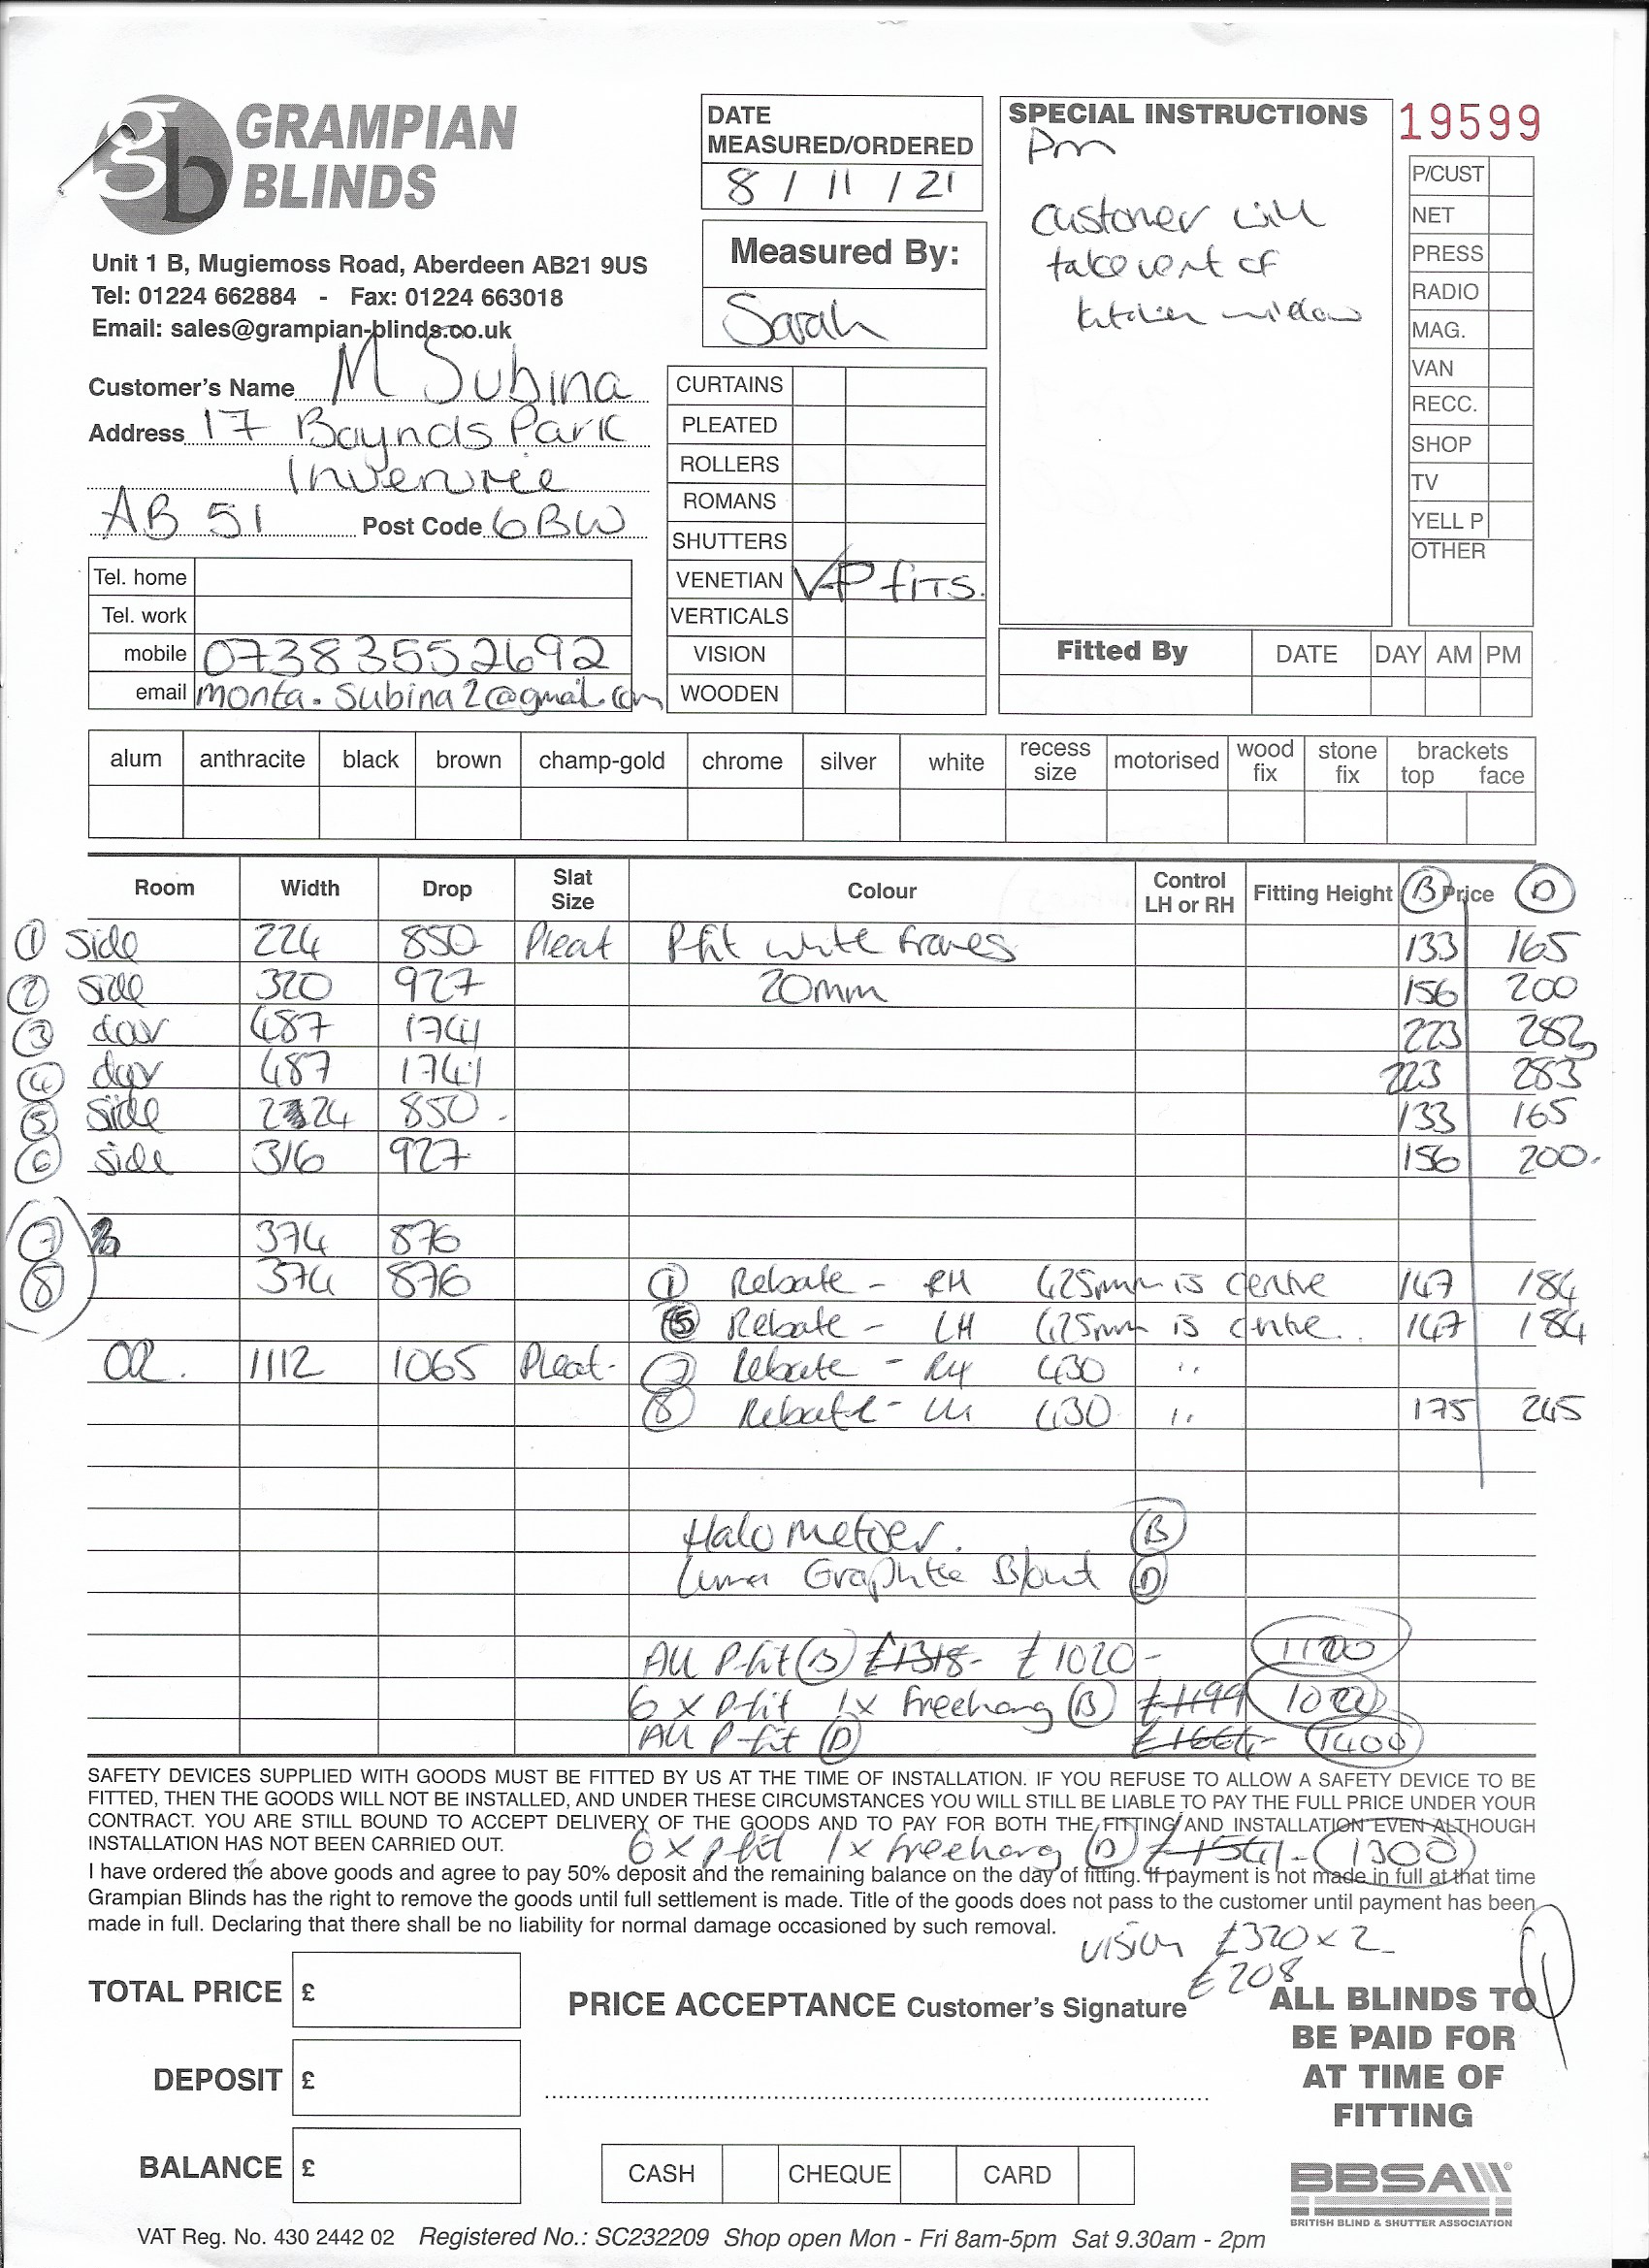 gb GRAMPIAN BLINDS
Unit 1 B, Mugiemoss Road, Aberdeen AB21 9US
Tel: 01224 662884 - Fax: 01224 663018
Email: sales@grampian-blinds.co.uk
Customer's Name M Subina
Address 17 Baynds Park
Inverurie
AB 51 Post Code 6BW
Tel. home
Tel. work
mobile 07383552692
email monta.subina2@gmail.com
DATE MEASURED/ORDERED
8 / 11 / 21
Measured By:
Sarah
CURTAINS
PLEATED
ROLLERS
ROMANS
SHUTTERS
VENETIAN VP fits.
VERTICALS
VISION
WOODEN
SPECIAL INSTRUCTIONS
Pm
customer will
take vent of
kitchen window
19599
P/CUST
NET
PRESS
RADIO
MAG.
VAN
RECC.
SHOP
TV
YELL P
OTHER
Fitted By DATE DAY AM PM
alum anthracite black brown champ-gold chrome silver white recess size motorised wood fix stone fix brackets top face
Room Width Drop Slat Size Colour Control LH or RH Fitting Height B Price D
1 side 224 850 Pleat Pfit white frames 133 165
2 side 320 927 20mm 156 200
3 door 487 1741 223 283
4 door 487 1741 223 283
5 side 224 850 133 165
6 side 316 927 156 200.
7 374 876
8 374 876 1 Rebate - RH 425mm is centre 147 184
5 Rebate - LH 425mm is centre.. 147 184
OR. 1112 1065 Pleat- 7 Rebate - RH 430 "
8 Rebate - LH 430 " 175 245
Halo B
Luna Graphite B/out D
All Pfit B £1318- £1020- 1120
6 x Pfit 1x freehang B £1199 1020
All P fit D £1664- 1400
SAFETY DEVICES SUPPLIED WITH GOODS MUST BE FITTED BY US AT THE TIME OF INSTALLATION. IF YOU REFUSE TO ALLOW A SAFETY DEVICE TO BE
FITTED, THEN THE GOODS WILL NOT BE INSTALLED, AND UNDER THESE CIRCUMSTANCES YOU WILL STILL BE LIABLE TO PAY THE FULL PRICE UNDER YOUR
CONTRACT. YOU ARE STILL BOUND TO ACCEPT DELIVERY OF THE GOODS AND TO PAY FOR BOTH THE FITTING AND INSTALLATION EVEN ALTHOUGH
INSTALLATION HAS NOT BEEN CARRIED OUT.
6 x pfit 1x freehang D £1541- 1300
I have ordered the above goods and agree to pay 50% deposit and the remaining balance on the day of fitting. If payment is not made in full at that time
Grampian Blinds has the right to remove the goods until full settlement is made. Title of the goods does not pass to the customer until payment has been
made in full. Declaring that there shall be no liability for normal damage occasioned by such removal.
vision £320 x 2-
£208
TOTAL PRICE £
DEPOSIT £
BALANCE £
PRICE ACCEPTANCE Customer's Signature
CASH CHEQUE CARD
ALL BLINDS TO
BE PAID FOR
AT TIME OF
FITTING
BBSA
BRITISH BLIND & SHUTTER ASSOCIATION
VAT Reg. No. 430 2442 02 Registered No.: SC232209 Shop open Mon - Fri 8am-5pm Sat 9.30am - 2pm